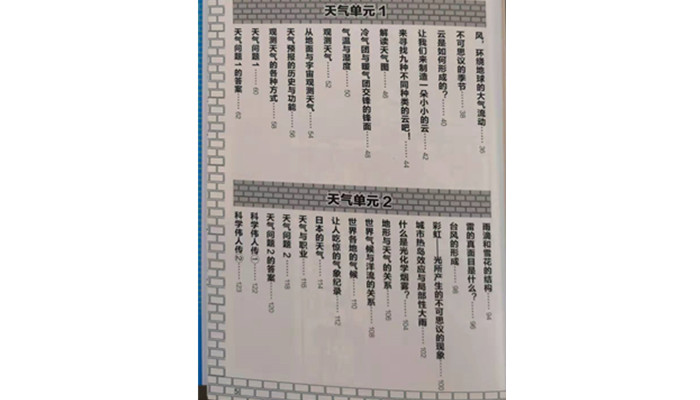 天气单元1
风，环绕地球的大气流动……36
不可思议的季节……38
云是如何形成的？……40
让我们来制造一朵小小的云……42
来寻找九种不同种类的云吧！……44
解读天气图……46
冷气团与暖气团交锋的锋面……48
气温与湿度……50
观测天气……52
从地面与宇宙观测天气……54
天气预报的历史与功能……56
观测天气的各种方式……58
天气问题1……60
天气问题1的答案……62
天气单元2
雨滴和雪花的结构……94
雷的真面目是什么？……96
台风的形成……98
彩虹——光所产生的不可思议的现象……100
城市热岛效应与局部性大雨……102
什么是光化学烟雾？……104
地形与天气的关系……106
世界气候与洋流的关系……108
世界各地的气候……110
让人吃惊的气象纪录……112
日本的天气……114
天气与职业……116
天气问题2……118
天气问题2的答案……120
科学伟人传①……122
科学伟人传②……123